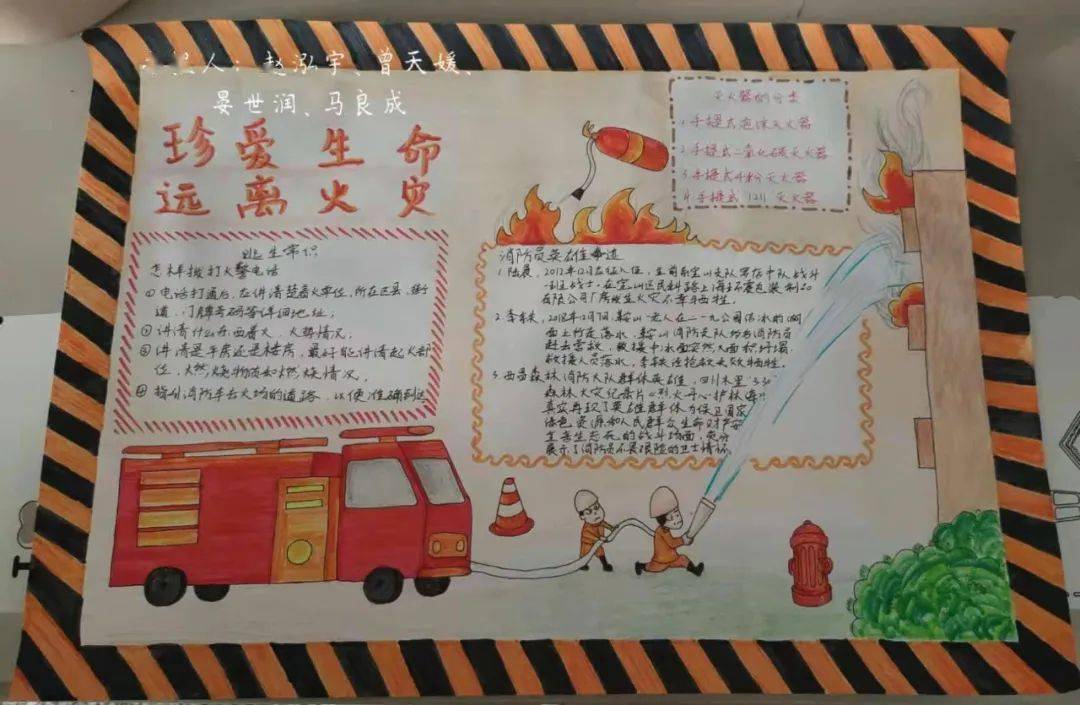 人：赵泓宇、曾天媛、
晏世润、马良成
珍爱生命
远离火灾
逃生常识
怎样拨打火警电话
①电话打通后，应讲清楚着火单位，所在区县、街
道、门牌号码等详细地址；
②讲清什么东西着火，火势情况，
③讲清是平房还是楼房，最好能讲清起火部
位，燃烧物质和燃烧情况，
④指引消防车去火场的道路，以便准确到达
灭火器的分类
1.手提式泡沫灭火器
2.手提式二氧化碳灭火器
3.手提式干粉灭火器
4.手提式1211灭火器
消防员英雄事迹
1.陆晨，2012年12月在役入伍，生前系宝山支队
战士，在宝山区民科路上海
有限公司厂房发生火灾不幸牺牲。
2.李 ，2018年12月7日，鞍山一老人在二一九公园结冰的湖
面上行走落水，鞍山消防支队 消防员
赶去营救，救援中冰面突然大面积坍塌，
救援人员落水，李 抢救无效牺牲。
3.西昌森林消防大队群体英雄，四川木里“3.30”
森林火灾纪录片《烈火丹心 护林海》
真实再现了英雄群体为保卫国家
绿色资源和人民群众生命财产安
生死 的战斗场面，充分
展示了消防员不畏艰险的卫士情怀